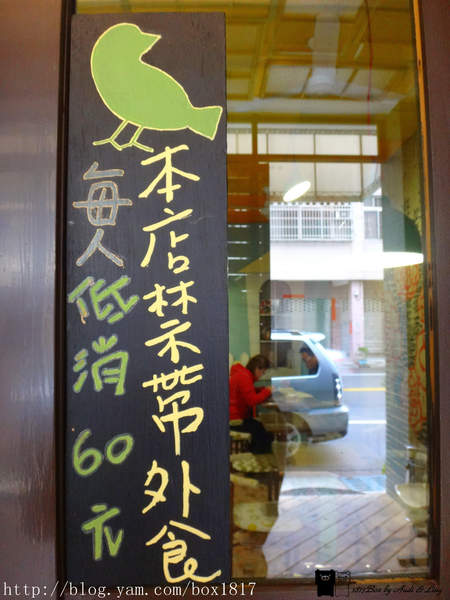 本店禁帶外食
每人低消60元
http://blog.yam.com/box1817
1817Box by Andi & Ling